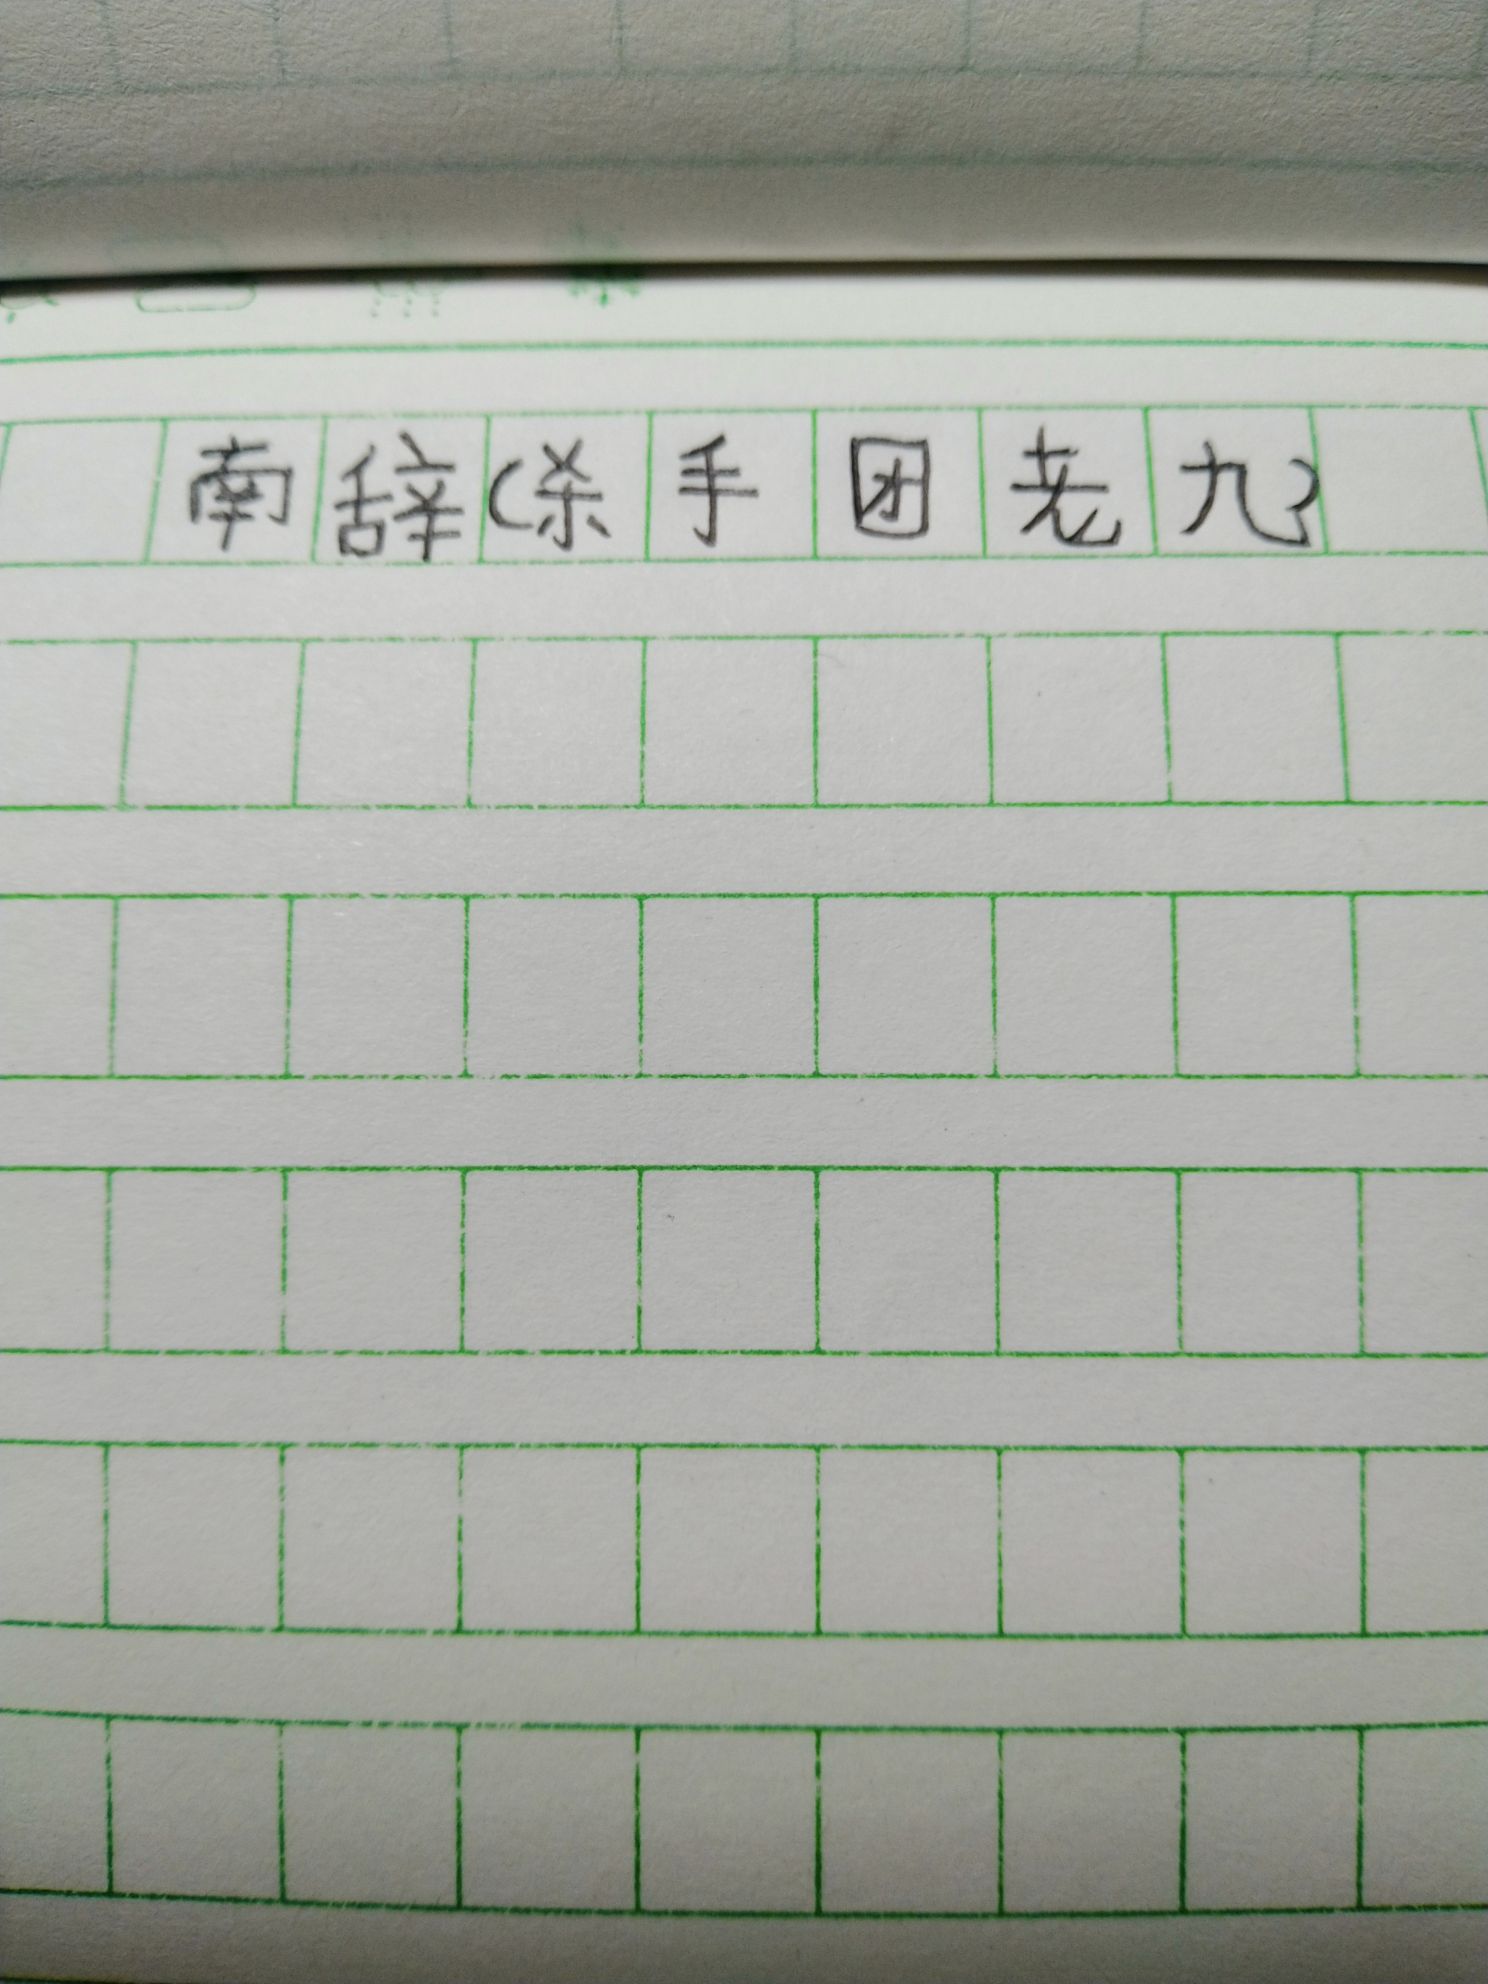 南辞(杀手团老九)